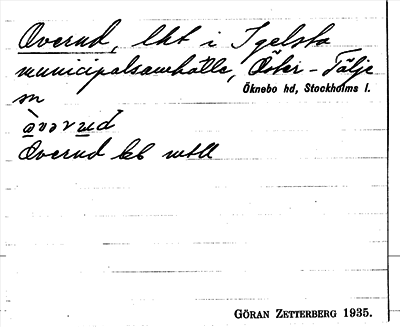 Overud, lht i Igelsta
municipalsamhälle, Öster-Tälje
sn
Öknebo hd, Stockholms l.
Overud
GÖRAN ZETTERBERG 1935.